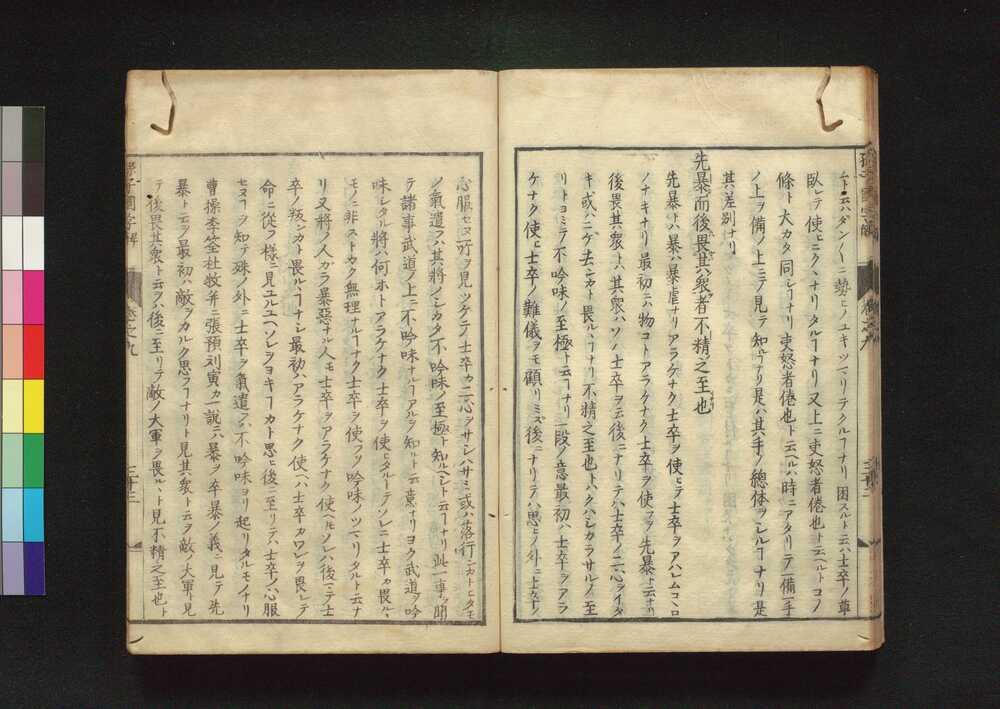 ムト云ハダン〱ニ勢ヒノユキツマリテクルヿナリ困スルト云ハ士卒ノ草
臥レテ使ヒニクヽナリタルヿナリ又上ニ吏怒者倦也ト云ヘルトコノ
條ト大カタ同シヿナリ吏怒者倦也ト云ヘルハ時ニアタリテ一備一手
ノ上ノ備ノ上ニテ見テ知ルヿナリ是ハ其手ノ總体ヲシルヿナリ是
其差別ナリ
先暴而後畏其衆者不精之至也
先暴トハ暴ハ暴虐ナリアラケナク士卒ヲ使ヒテ士卒ヲアハレムコヽロ
ノナキナリ最初ニハ物コトアラケナク士卒ヲ使フヲ先暴ト云ナリ
後畏其衆トハ其衆ハソノ士卒ヲ云後ニナリテハ士卒ノ二心ライタ
キ或ハニゲ去ンカト畏ルヽヿナリ不精之至也トハクハシカラサルノ至
リトヨミテ不吟味ノ至極ト云ヿナリ一段ノ意最初ハ士卒ヲアラ
ケナク使ヒ士卒ノ難儀ヲモ顧リミズ後ニナリテハ思ヒノ外ニ士卒ノ
心服セヌ所ヲ見ツケテ士卒カ二心ヲサシハサミ或ハ落行ンカトヒタモ
ノ氣遣フハ其將ノシカタ不吟味ノ至極ト知ルヘシト云ヿナリ此一事ヲ聞
テ諸事武道ノ上ニ不吟味ナルヿアルヲ知ルト云意ナリヨク武道ヲ吟
味シタル將ハ何ホトアラケナク士卒ヲ使ヒタルトテソレニ士卒カ畏ルヽ
モノニ非ストカク無理ナルヿナク士卒ヲ使フヲ吟味ノツマリタルト云ナ
リ又將ノ人カラ暴惡ナル人モ士卒ヲアラケナク使ヘ𪜈ソレハ後ニテ士
卒ノ叛ンカト畏ルヽヿナシ最初ハアラケナク使ヘハ士卒カワレヲ畏レテ
命ニ從フ樣ニ見ユルユヘソレヲヨキヿカト思ヒ後ニ至リテハ士卒ノ心服
セヌヿヲ知テ殊ノ外ニ士卒ヲ氣遣フハ不吟味ヨリ起リタルモノナリ
曹操李筌杜牧并ニ張預刘寅カ一説ニハ暴ヲ卒暴ノ義ニ見テ先
暴ト云ヲ最初ハ敵ヲカルク思フヿナリト見其衆ト云ヲ敵ノ大軍ト見
テ後畏其衆ト云フハ後ニ至リテ敵ノ大軍ヲ畏ルヽト見不精之至也ト
孫子國字解
卷之九
三十三